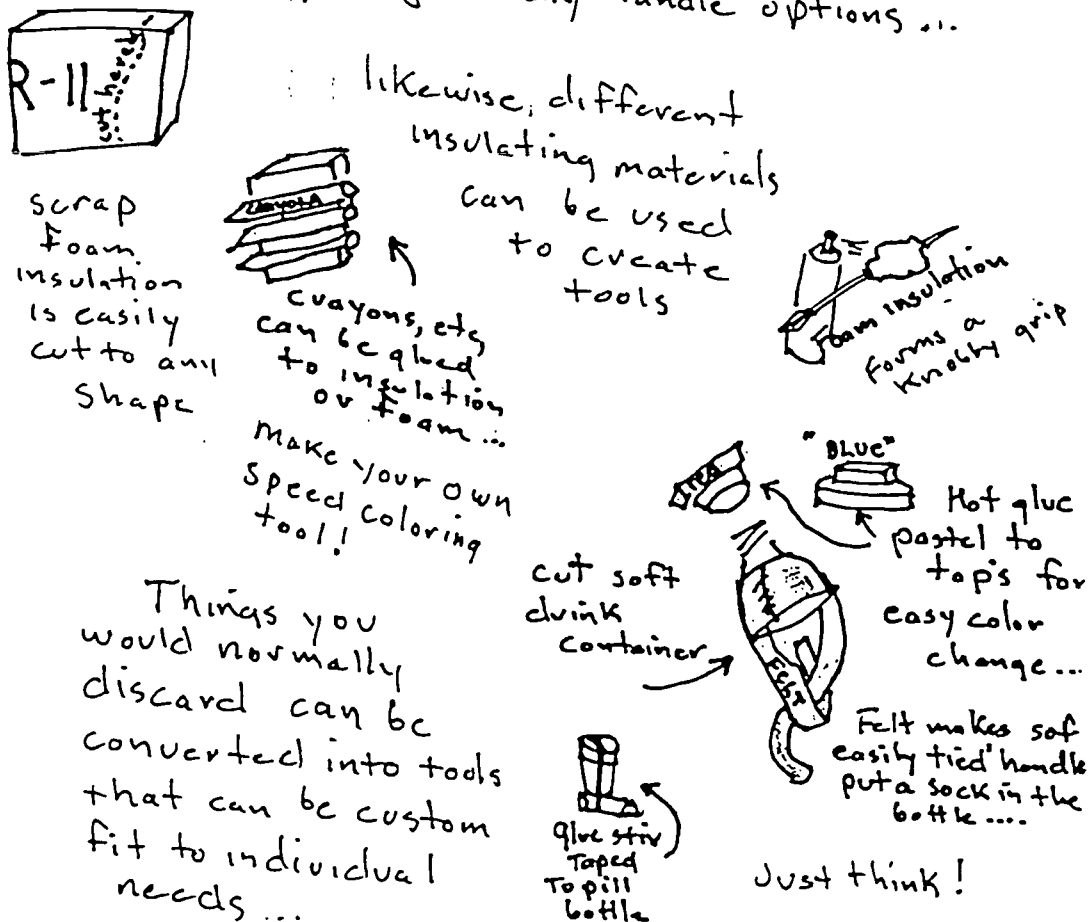 handle options...
R-11
cut here
likewise, different
insulating materials
can be used
to create
tools
scrap
foam
insulation
is easily
cut to any
shape
crayola
crayons, etc,
can be glued
to insulation
or foam...
make your own
speed coloring
tool!
Foam insulation
forms a
knobby grip
"BLUE"
Hot glue
pastel to
top's for
easy color
change...
cut soft
drink
container
Felt
Felt makes sof
easily tied handle
put a sock in the
bottle....
Things you
would normally
discard can be
converted into tools
that can be custom
fit to individual
needs...
glue stir
Taped
To pill
bottle
Just think!